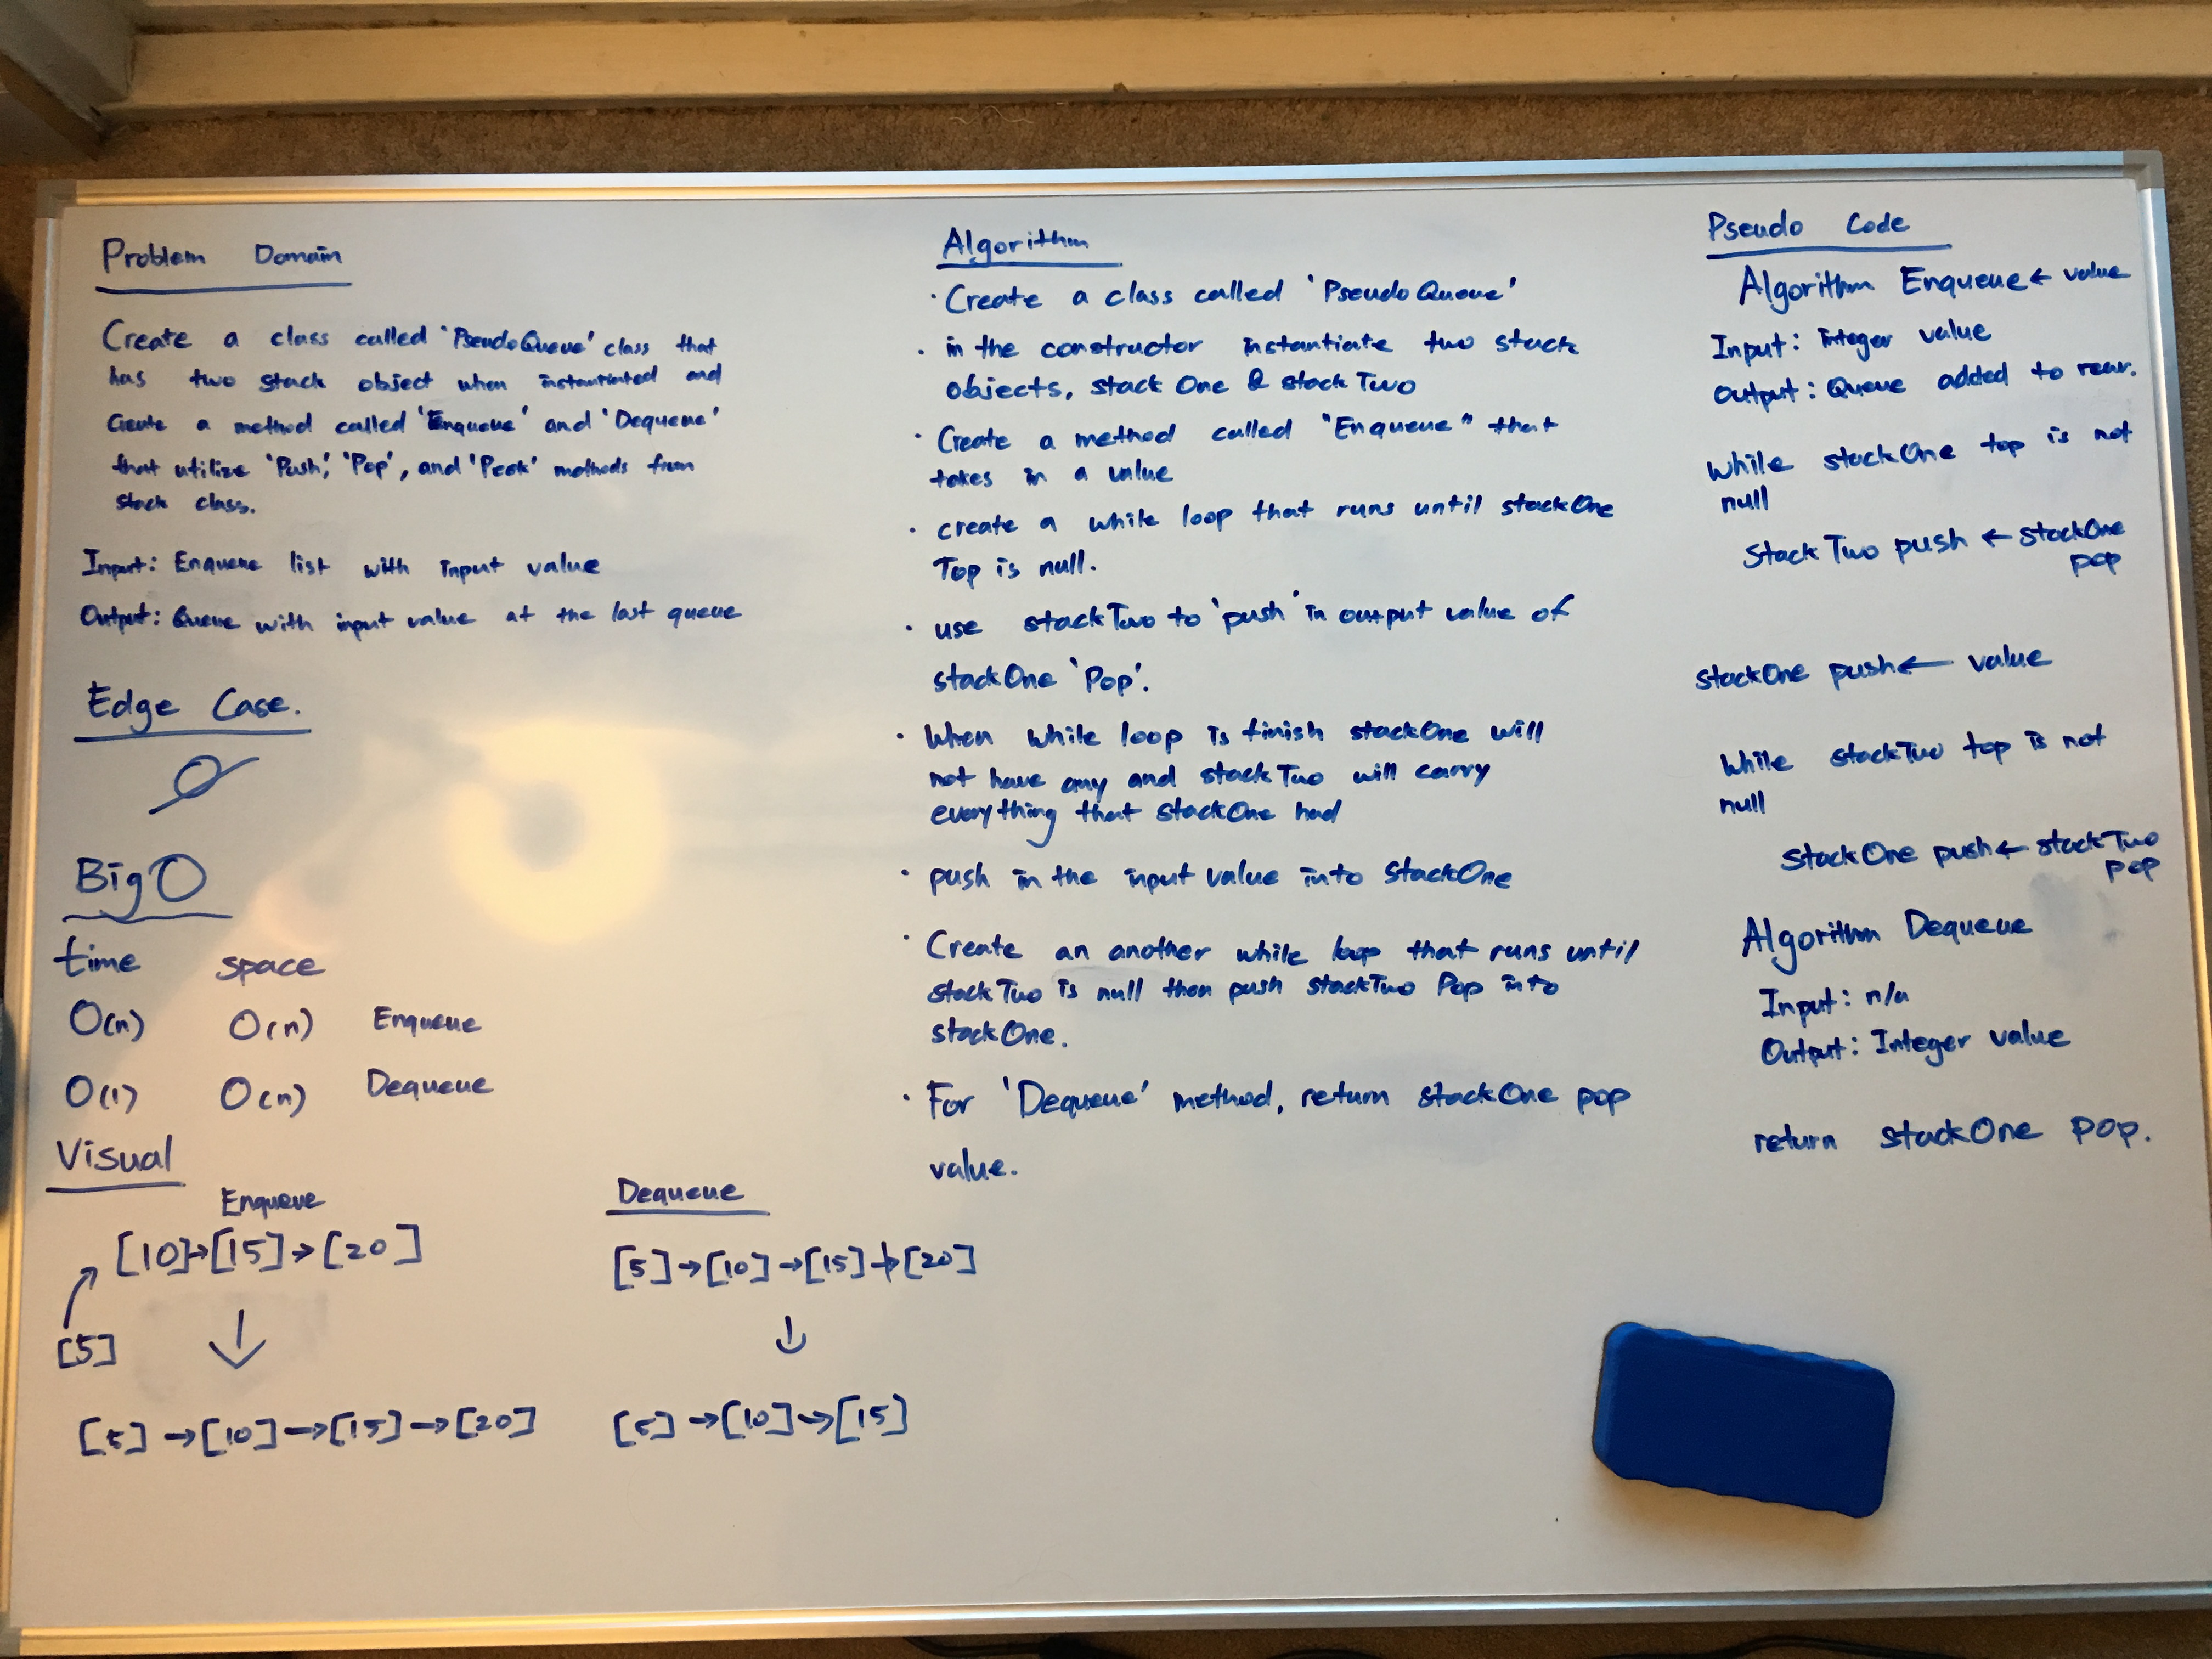 Problem Domain
Create a class called 'PseudoQueue' class that
has two stack object when instantiated and
Create a method called 'Enqueue' and 'Dequeue'
that utilize 'Push', 'Pop', and 'Peek' methods from
stack class.
Input: Enqueue list with input value
Output: Queue with input value at the last queue
Edge Case.
Big O
time space
O(n) O(n) Enqueue
O(1) O(n) Dequeue
Visual
Enqueue
[10]→[15]→[20]
[5]
[5]→[10]→[15]→[20]
Dequeue
[5]→[10]→[15]→[20]
[5]→[10]→[15]
Algorithm
· Create a class called 'PseudoQueue'
· in the constructor instantiate two stack
objects, stackOne & stackTwo
· Create a method called "Enqueue" that
takes in a value
· create a while loop that runs until stackOne
Top is null.
· use stackTwo to 'push' in output value of
stackOne 'Pop'.
· When while loop is finish stackOne will
not have any and stackTwo will carry
everything that stackOne had
· push in the input value into StackOne
· Create an another while loop that runs until
stackTwo is null then push stackTwo Pop into
stackOne.
· For 'Dequeue' method, return stackOne pop
value.
Pseudo Code
Algorithm Enqueue ← value
Input: integer value
Output: Queue added to rear.
While stackOne top is not
null
StackTwo push ← stackOne
pop
stackOne push ← value
While stackTwo top is not
null
StackOne push ← stackTwo
pop
Algorithm Dequeue
Input: n/a
Output: Integer value
return stackOne pop.